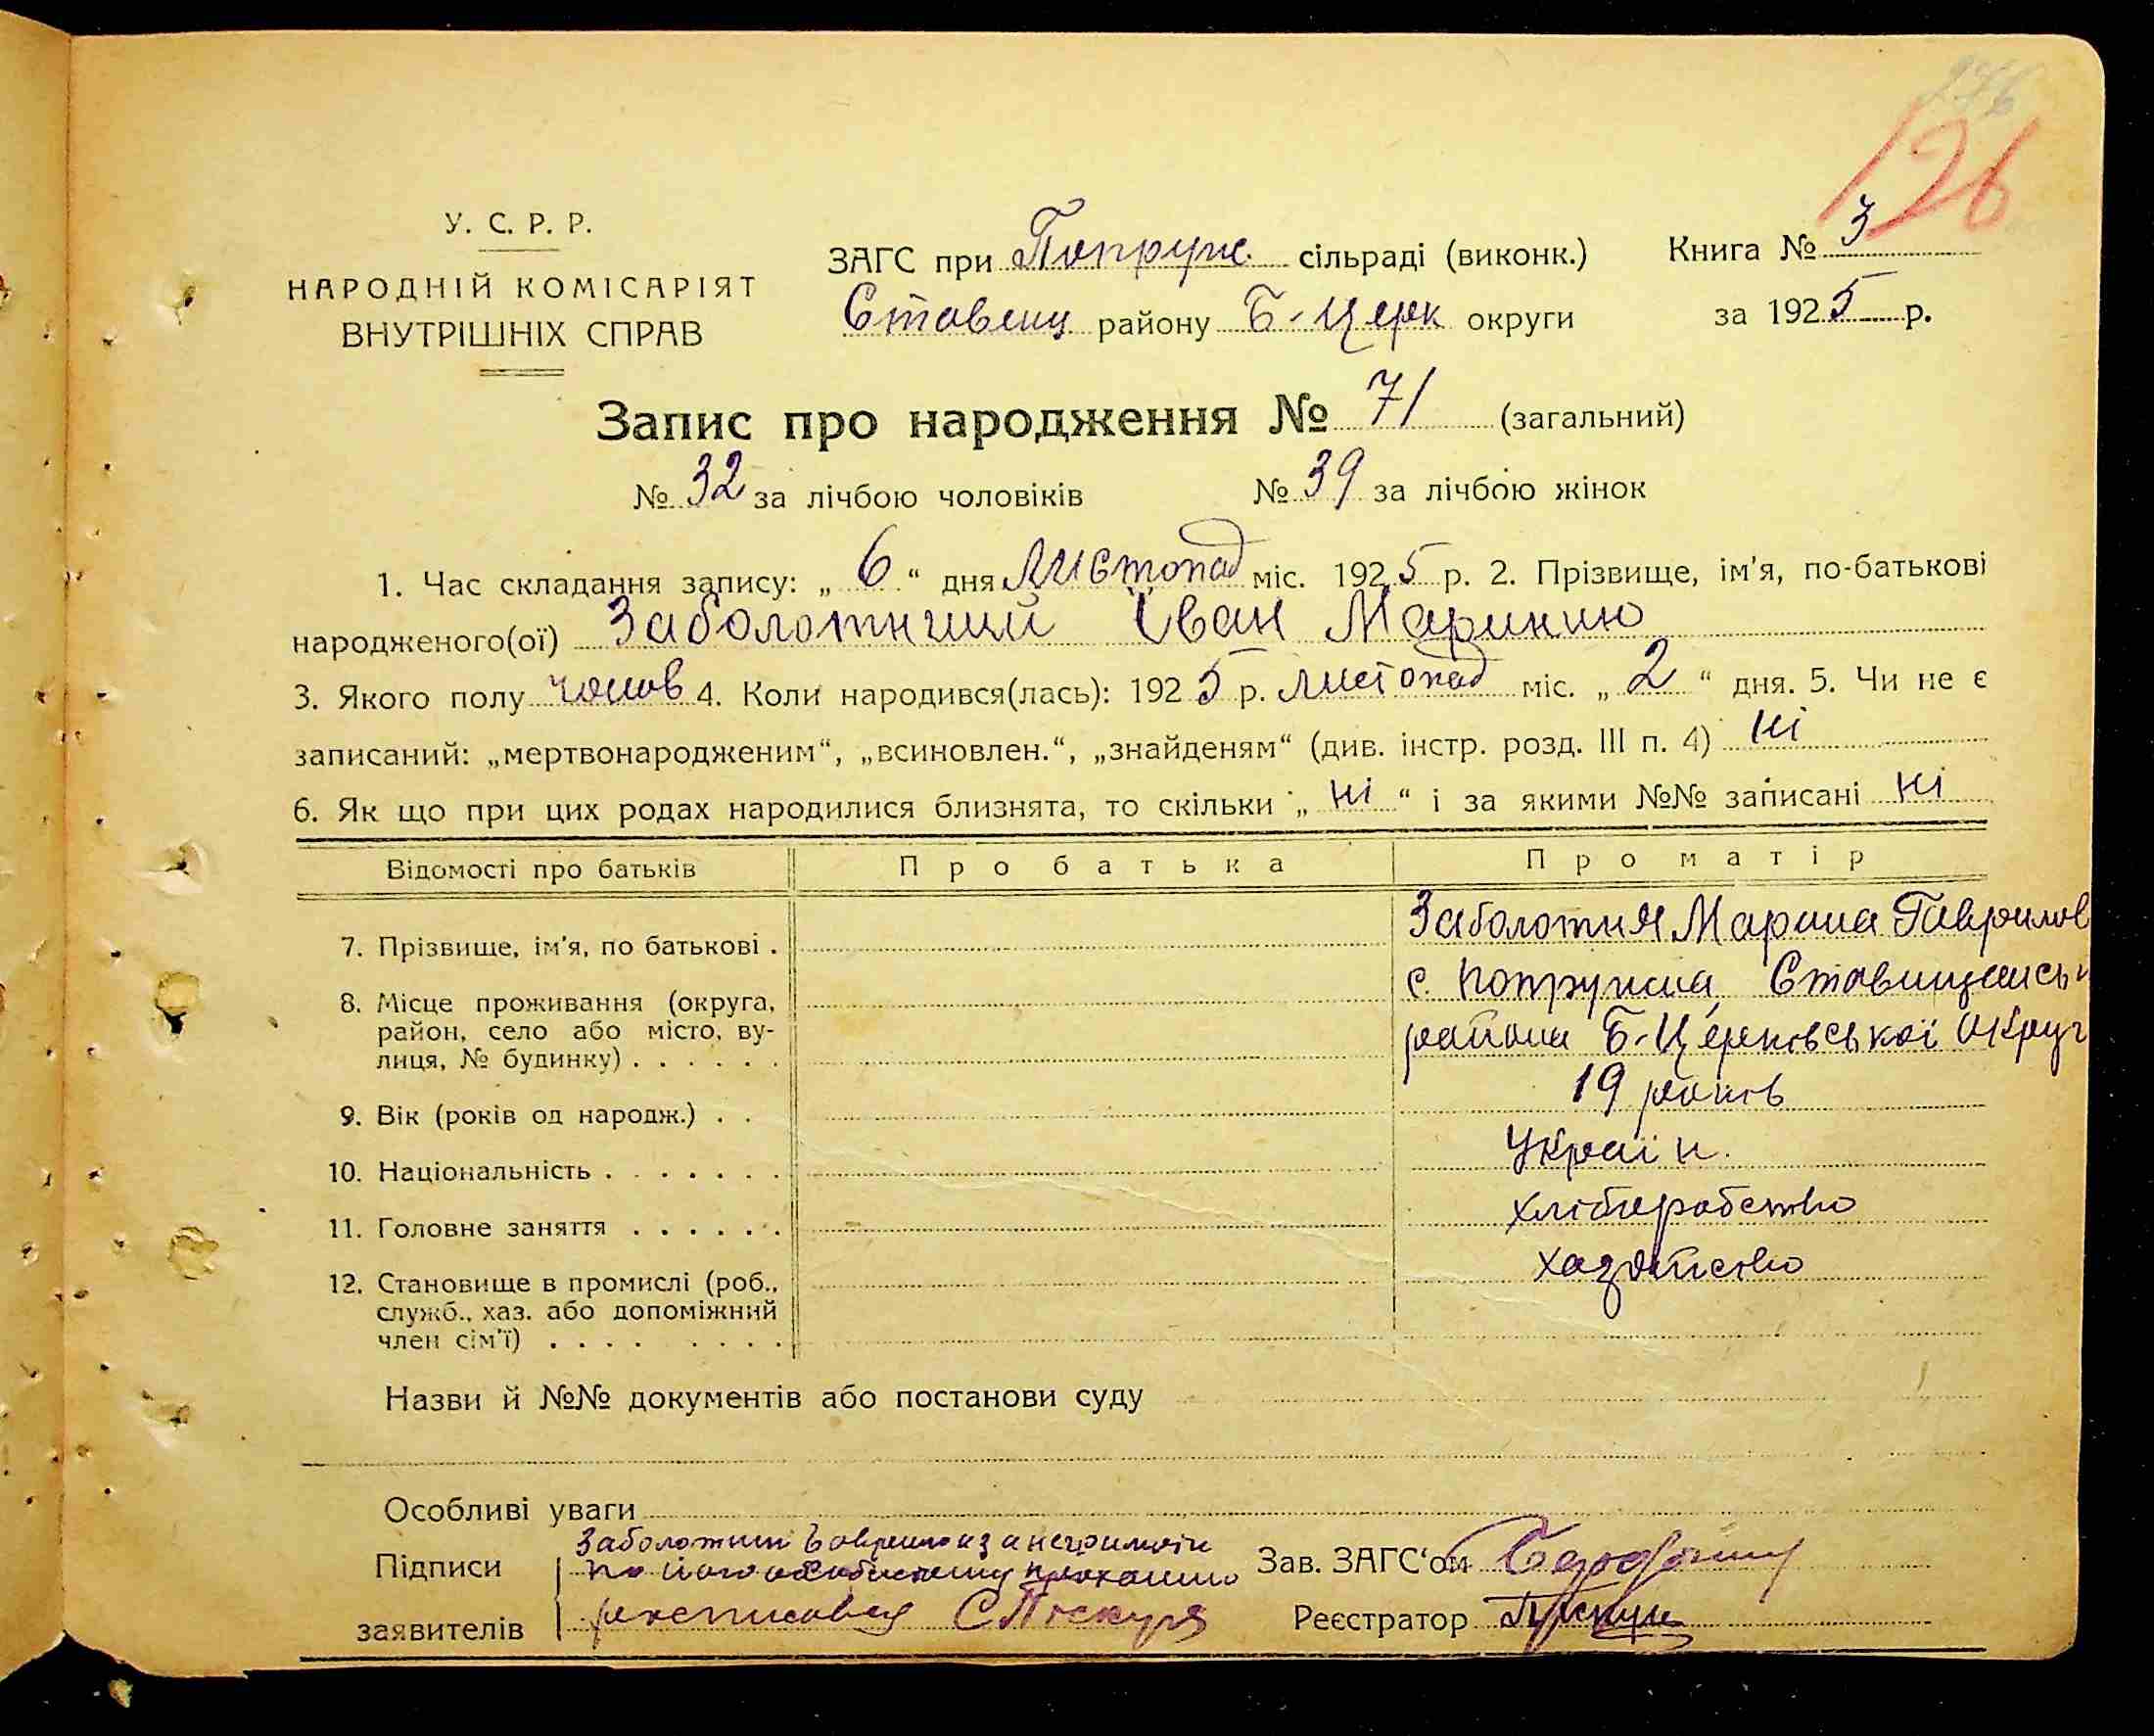 276
126
У. С. Р. Р.
НАРОДНІЙ КОМІСАРІЯТ
ВНУТРІШНІХ СПРАВ
ЗАГС при Попруж. сільраді (виконк.) Книга № 3
Ставищ району Б-Церк округи за 1925 р.
Запис про народження № 71 (загальний)
№ 32 за лічбою чоловіків № 39 за лічбою жінок
1. Час складання запису: „ 6 “ дня Листопад міс. 1925 р. 2. Прізвище, ім'я, по-батькові
народженого(ої) Іван
3. Якого полу чолов 4. Коли народився(лась): 1925 р. листопад міс. „ 2 “ дня. 5. Чи не є
записаний: „мертвонародженим“, „всиновлен.“, „знайденям“ (див. інстр. розд. III п. 4) ні
6. Як що при цих родах народилися близнята, то скільки „ ні “ і за якими №№ записані ні
Відомості про батьків Про батька Про матір
7. Прізвище, ім'я, по батькові . Заболотня Гаврилов
8. Місце проживання (округа, с.
район, село або місто, ву- Б-Церковської округ
лиця, № будинку) . . . . . .
9. Вік (років од народж.) . . 19 років
10. Національність . . . . . . . Україн.
11. Головне заняття . . . . . . хліборобство
12. Становище в промислі (роб., хазяйство
служб., хаз. або допоміжний
член сім'ї) . . . . . . . .
Назви й №№ документів або постанови суду
Особливі уваги
Підписи Заболотний неграмотн Зав. ЗАГС'ом
по його
заявителів Реєстратор